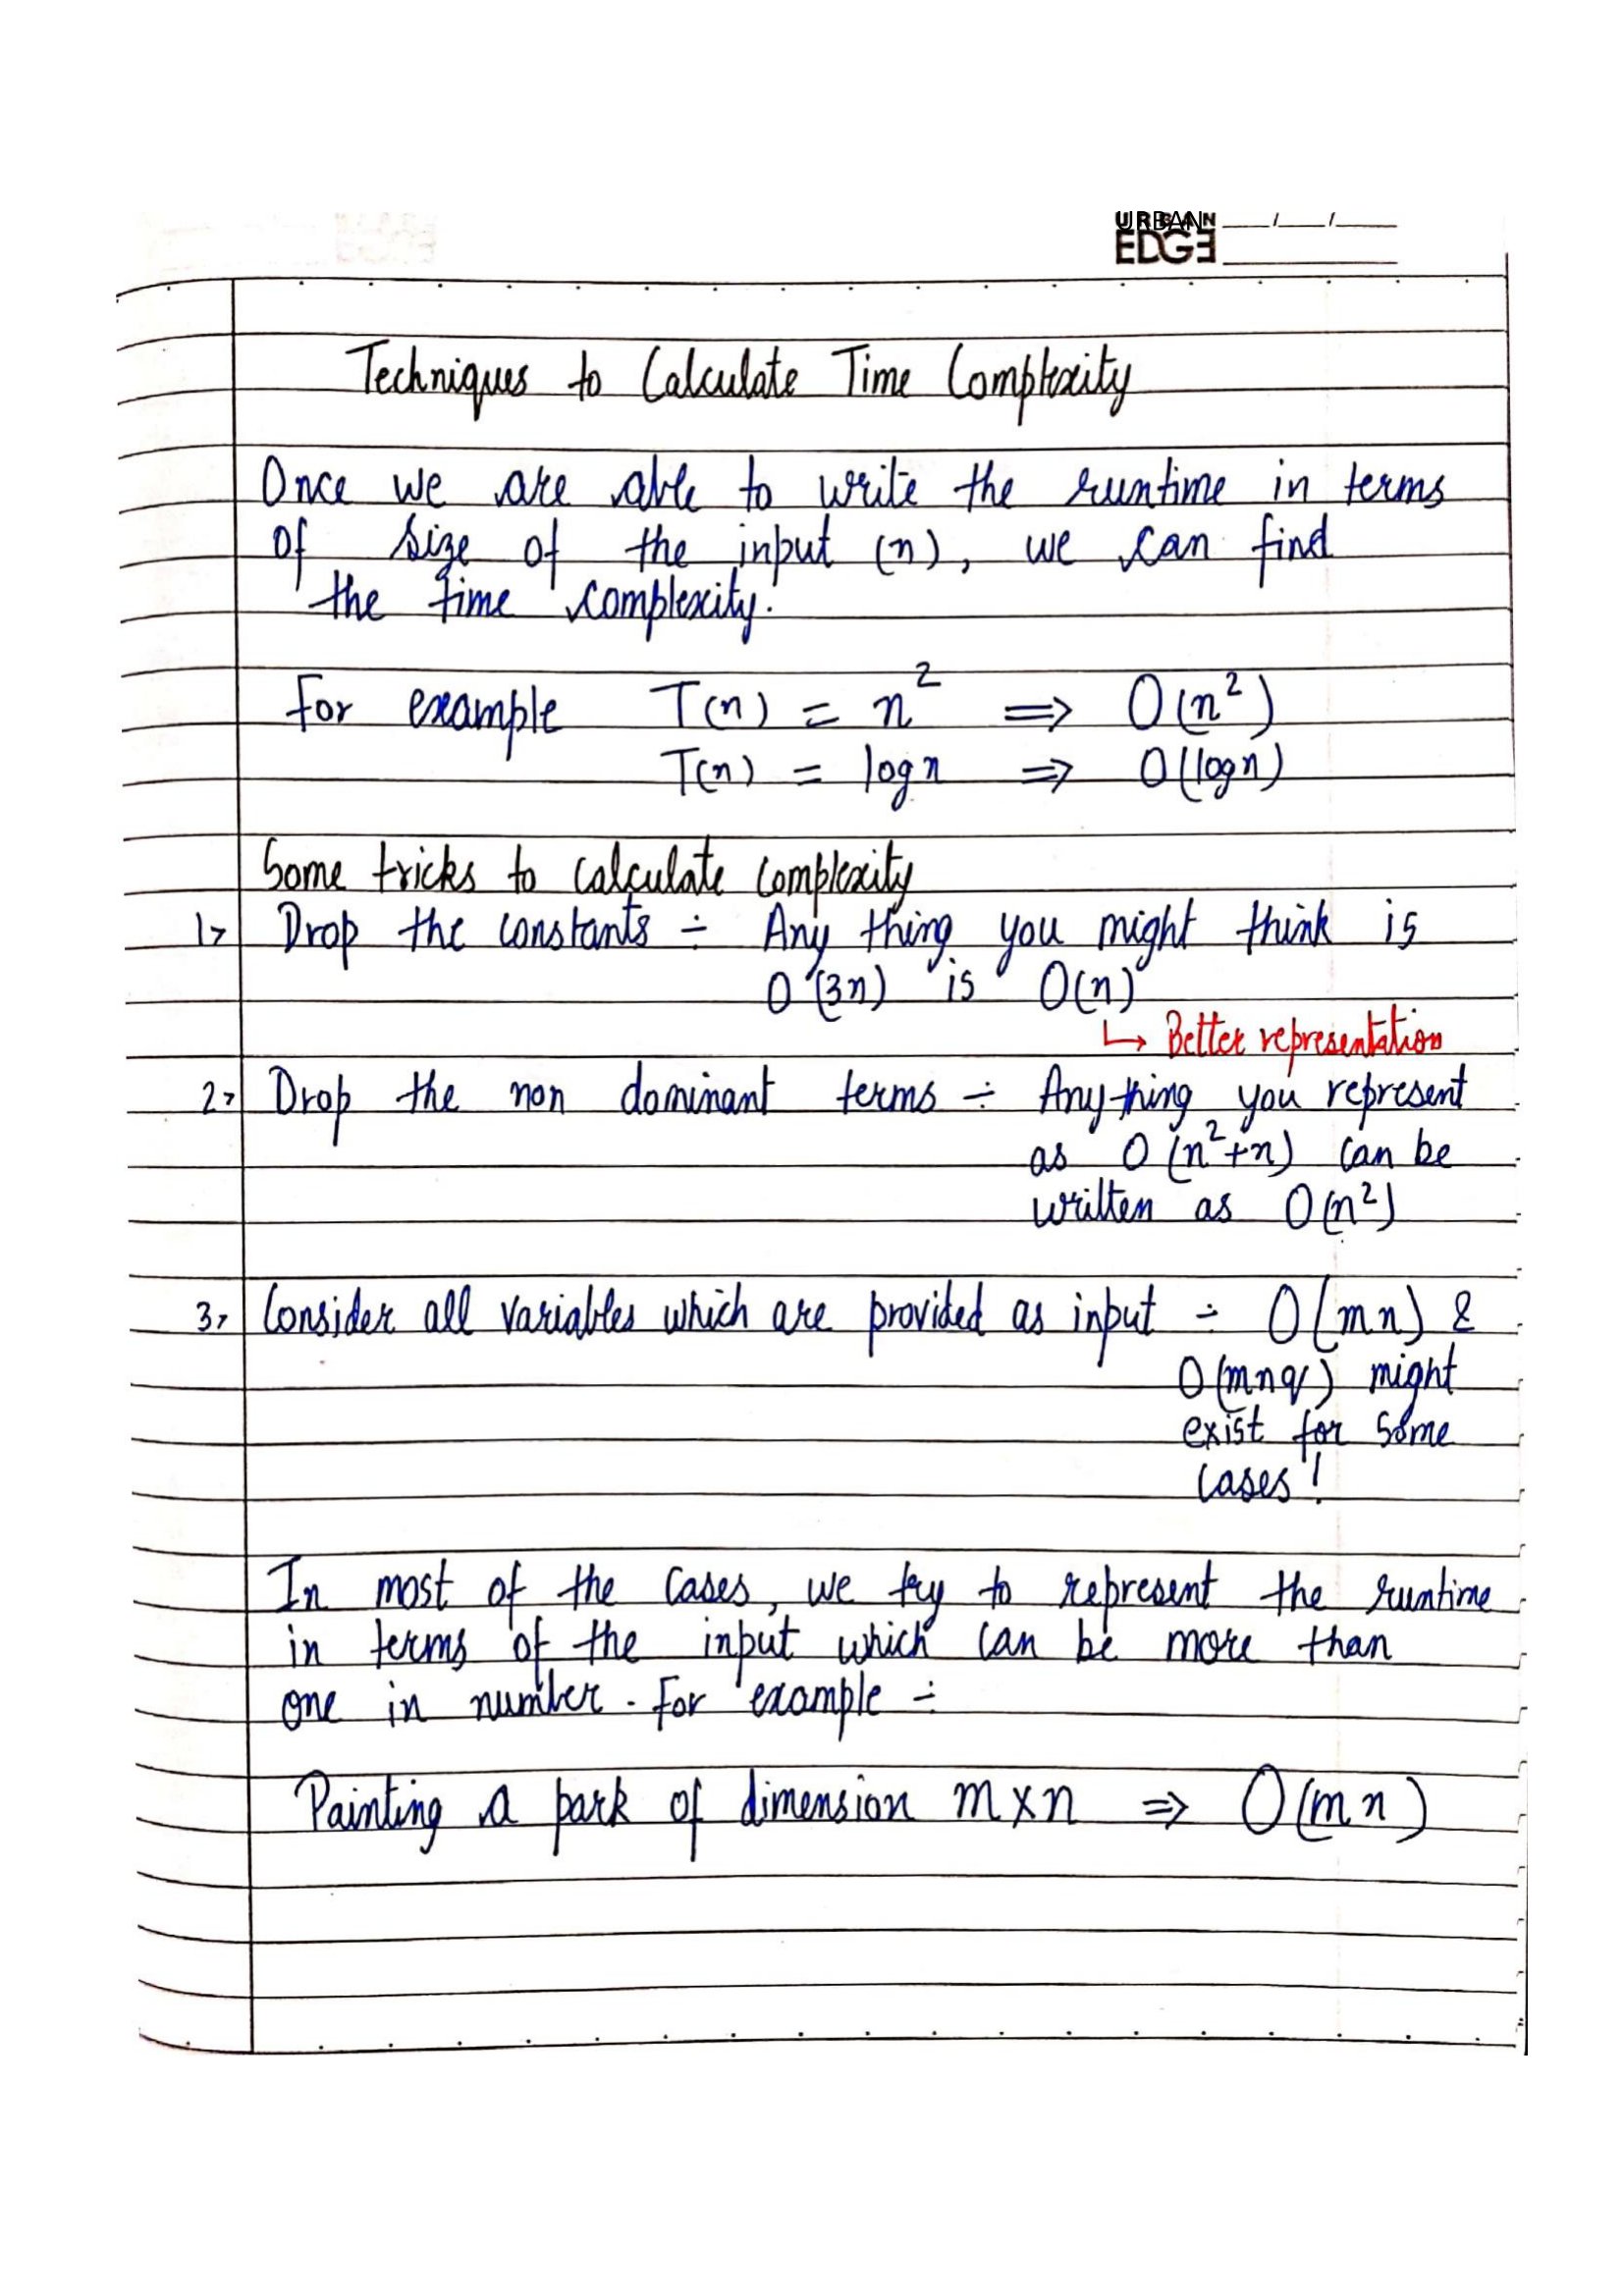 URBAN
EDGE
Techniques to Calculate Time Complexity
Once we are able to write the runtime in terms
of size of the input (n), we can find
the time complexity.
For example T(n) = n² ⇒ O(n²)
T(n) = log n ⇒ O(log n)
Some tricks to calculate complexity
1> Drop the constants ÷ Any thing you might think is
O(3n) is O(n)
↳ Better representation
2> Drop the non dominant terms ÷ Anything you represent
as O(n²+n) can be
written as O(n²)
3> Consider all variables which are provided as input ÷ O(mn) &
O(mnq) might
exist for some
cases!
In most of the cases, we try to represent the runtime
in terms of the input which can be more than
one in number. For example ÷
Painting a park of dimension m×n ⇒ O(mn)